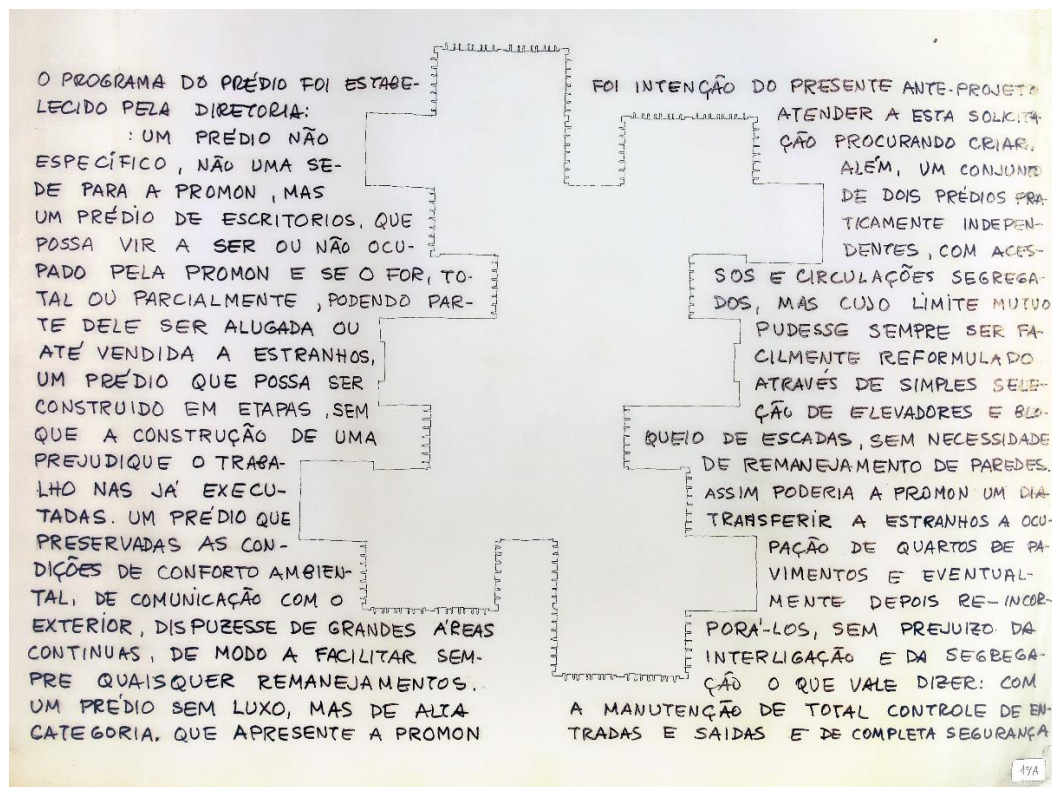 O PROGRAMA DO PRÉDIO FOI ESTABE-
LECIDO PELA DIRETORIA:
: UM PRÉDIO NÃO
ESPECÍFICO, NÃO UMA SE-
DE PARA A PROMON, MAS
UM PRÉDIO DE ESCRITORIOS, QUE
POSSA VIR A SER OU NÃO OCU-
PADO PELA PROMON E SE O FOR, TO-
TAL OU PARCIALMENTE, PODENDO PAR-
TE DELE SER ALUGADA OU
ATÉ VENDIDA A ESTRANHOS,
UM PRÉDIO QUE POSSA SER
CONSTRUIDO EM ETAPAS, SEM
QUE A CONSTRUÇÃO DE UMA
PREJUDIQUE O TRABA-
LHO NAS JÁ EXECU-
TADAS. UM PRÉDIO QUE
PRESERVADAS AS CON-
DIÇÕES DE CONFORTO AMBIEN-
TAL, DE COMUNICAÇÃO COM O
EXTERIOR, DISPUZESSE DE GRANDES ÁREAS
CONTINUAS, DE MODO A FACILITAR SEM-
PRE QUAISQUER REMANEJAMENTOS.
UM PRÉDIO SEM LUXO, MAS DE ALTA
CATEGORIA. QUE APRESENTE A PROMON
FOI INTENÇÃO DO PRESENTE ANTE-PROJETO
ATENDER A ESTA SOLICITA
ÇÃO PROCURANDO CRIAR,
ALÉM, UM CONJUNTO
DE DOIS PRÉDIOS PRA-
TICAMENTE INDEPEN-
DENTES, COM ACES-
SOS E CIRCULAÇÕES SEGREGA-
DOS, MAS CUJO LIMITE MUTUO
PUDESSE SEMPRE SER FA-
CILMENTE REFORMULADO
ATRAVÉS DE SIMPLES SELE-
ÇÃO DE ELEVADORES E BLO-
QUEIO DE ESCADAS, SEM NECESSIDADE
DE REMANEJAMENTO DE PAREDES.
ASSIM PODERIA A PROMON UM DIA
TRANSFERIR A ESTRANHOS A OCU-
PAÇÃO DE QUARTOS DE PA-
VIMENTOS E EVENTUAL-
MENTE DEPOIS RE-INCOR-
PORÁ-LOS, SEM PREJUIZO DA
INTERLIGAÇÃO E DA SEGREGA-
ÇÃO O QUE VALE DIZER: COM
A MANUTENÇÃO DE TOTAL CONTROLE DE EN-
TRADAS E SAIDAS E DE COMPLETA SEGURANÇA
19A